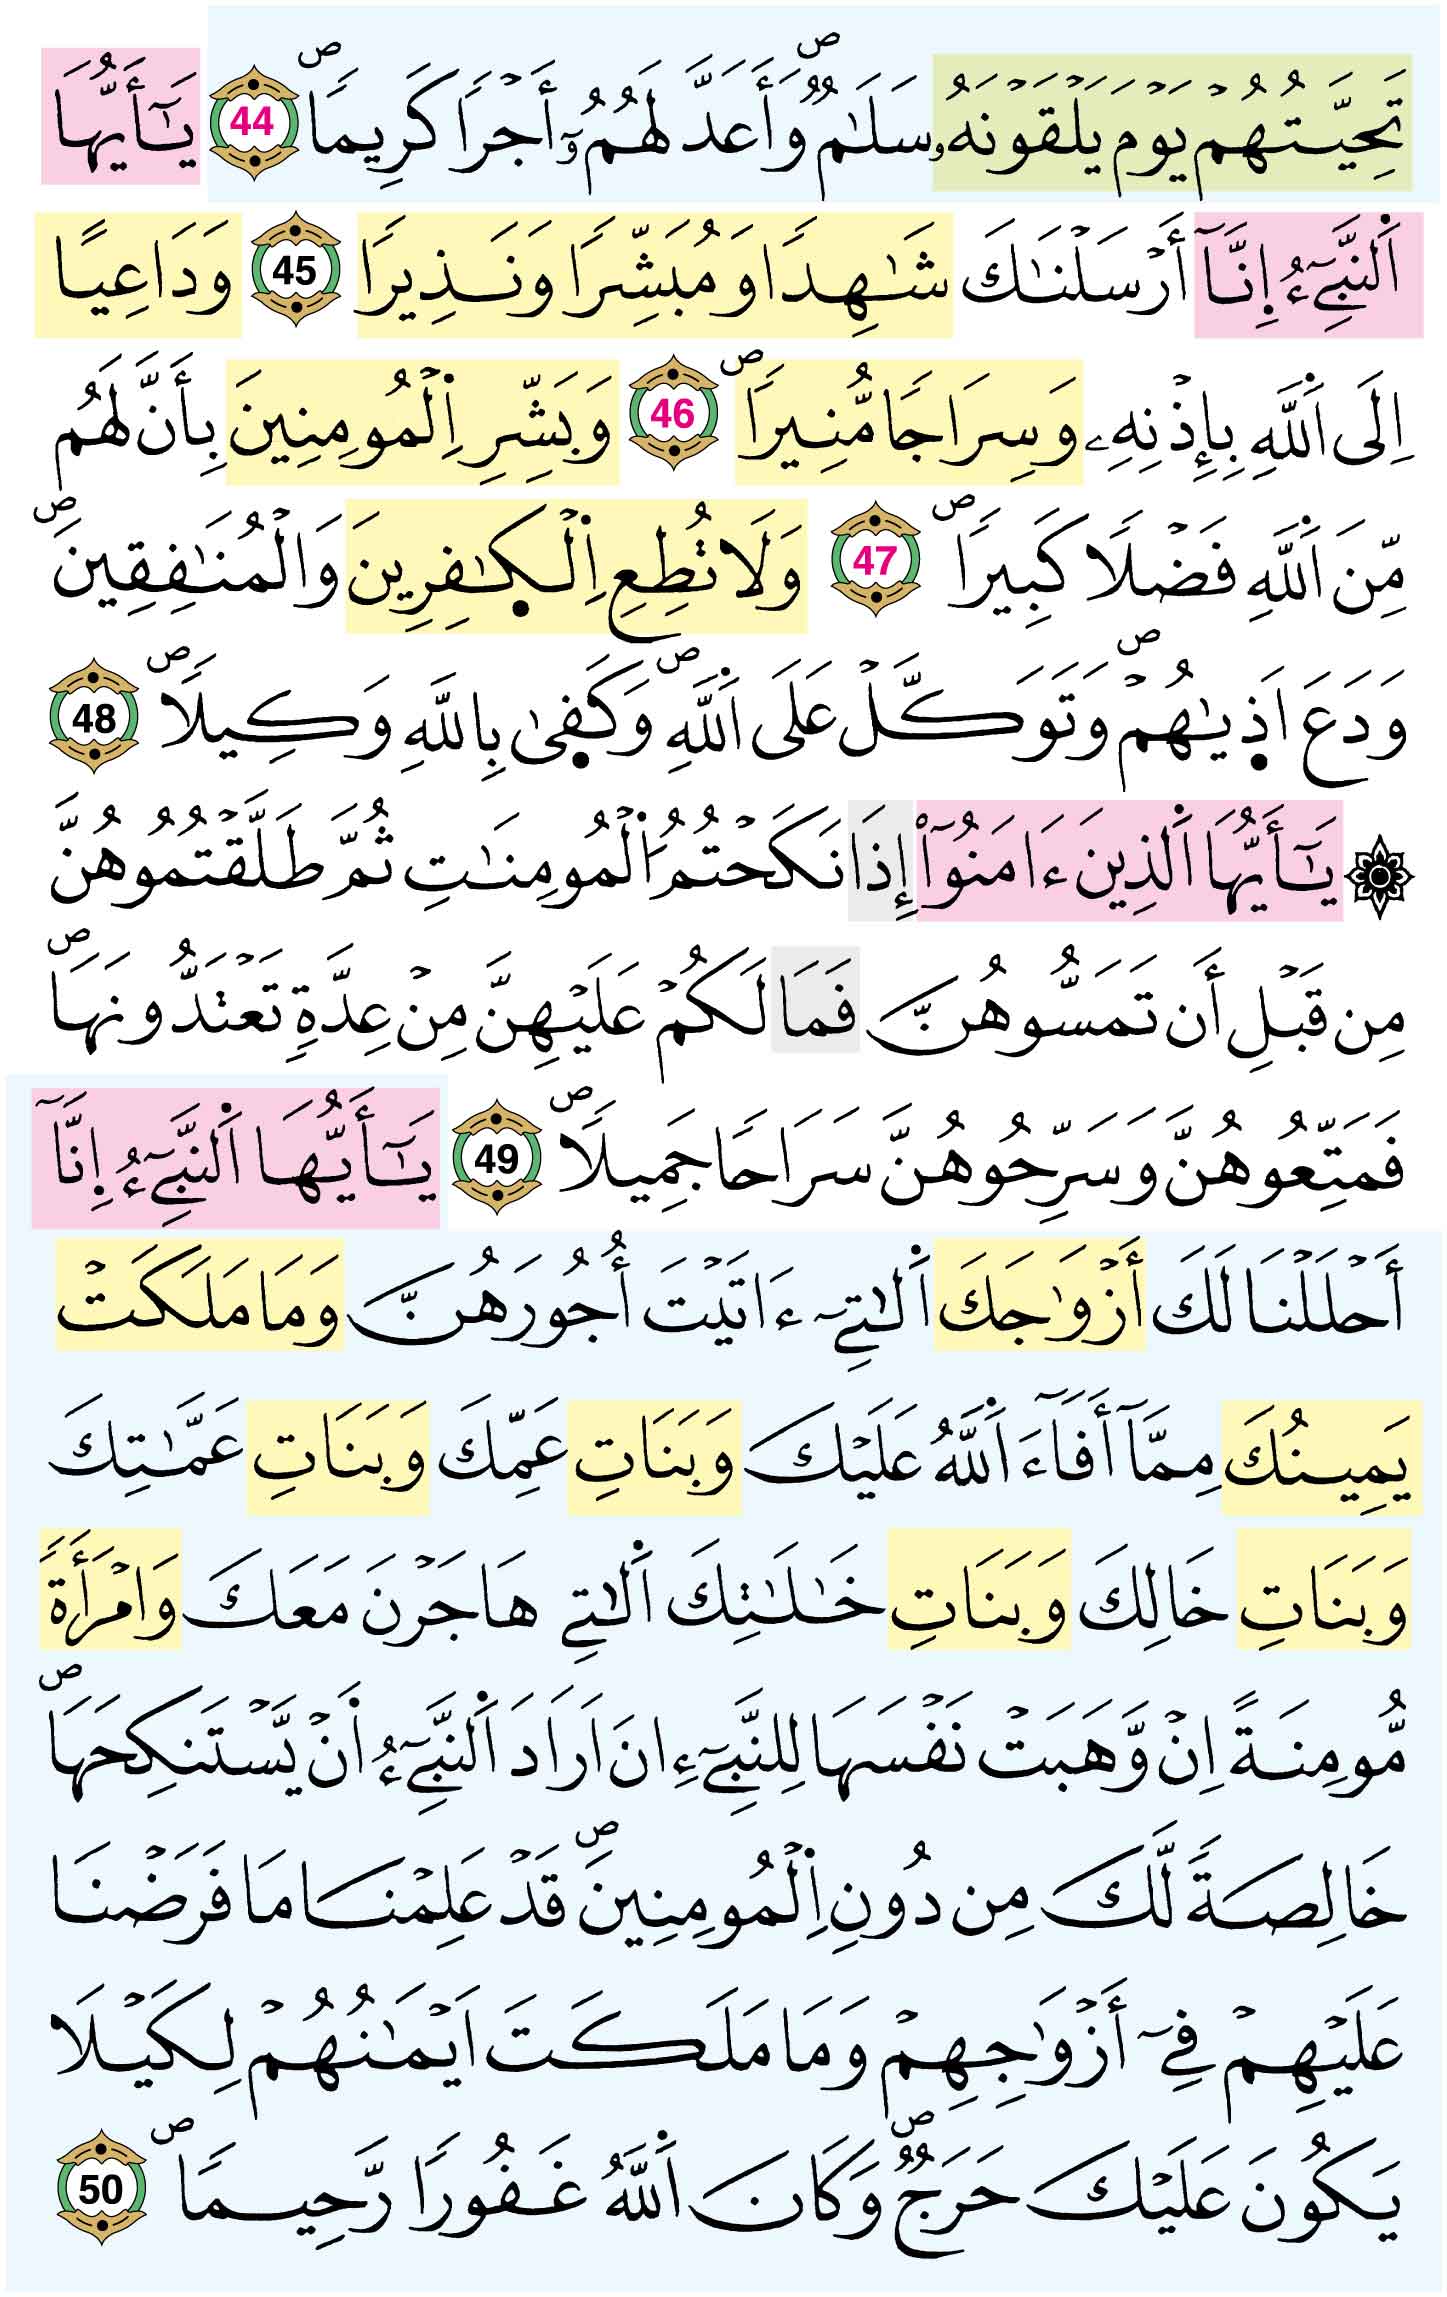 تَحِيَّتُهُمْ يَوْمَ يَلْقَوْنَهُۥ سَلَٰمٌۖ وَأَعَدَّ لَهُمُۥٓ أَجْرٗا كَرِيمٗاۖ 44 يَٰٓأَيُّهَا
اَ۬لنَّبِيٓءُ اِ۪نَّآ أَرْسَلْنَٰكَ شَٰهِدٗا وَمُبَشِّرٗا وَنَذِيرٗا 45 وَدَاعِياً
اِلَى اَ۬للَّهِ بِإِذْنِهِۦ وَسِرَاجٗا مُّنِيرٗاۖ 46 وَبَشِّرِ اِ۬لْمُومِنِينَ بِأَنَّ لَهُم
مِّنَ اَ۬للَّهِ فَضْلٗا كَبِيرٗاۖ 47 وَلَا تُطِعِ اِ۬لْكٰ۪فِرِينَ وَالْمُنَٰفِقِينَۖ
وَدَعَ اَذ۪يٰهُمْۖ وَتَوَكَّلْ عَلَى اَ۬للَّهِۖ وَكَف۪يٰ بِاللَّهِ وَكِيلٗاۖ 48
۞ يَٰٓأَيُّهَا اَ۬لذِينَ ءَامَنُوٓاْ إِذَا نَكَحْتُمُ اُ۬لْمُومِنَٰتِ ثُمَّ طَلَّقْتُمُوهُنَّ
مِن قَبْلِ أَن تَمَسُّوهُنَّ فَمَا لَكُمْ عَلَيْهِنَّ مِنْ عِدَّةٖ تَعْتَدُّونَهَاۖ
فَمَتِّعُوهُنَّ وَسَرِّحُوهُنَّ سَرَاحٗا جَمِيلٗاۖ 49 يَٰٓأَيُّهَا اَ۬لنَّبِيٓءُ اِ۪نَّآ
أَحْلَلْنَا لَكَ أَزْوَٰجَكَ اَ۬لٰتِےٓ ءَاتَيْتَ أُجُورَهُنَّ وَمَا مَلَكَتْ
يَمِينُكَ مِمَّآ أَفَآءَ اَ۬للَّهُ عَلَيْكَ وَبَنَاتِ عَمِّكَ وَبَنَاتِ عَمَّٰتِكَ
وَبَنَاتِ خَالِكَ وَبَنَاتِ خَٰلَٰتِكَ اَ۬لٰتِے هَاجَرْنَ مَعَكَ وَامْرَأَةٗ
مُّومِنَةً اِنْ وَّهَبَتْ نَفْسَهَا لِلنَّبِيٓءِ انَ اَرَادَ اَ۬لنَّبِيٓءُ أَنْ يَّسْتَنكِحَهَاۖ
خَالِصَةٗ لَّكَ مِن دُونِ اِ۬لْمُومِنِينَۖ قَدْ عَلِمْنَا مَا فَرَضْنَا
عَلَيْهِمْ فِےٓ أَزْوَٰجِهِمْ وَمَا مَلَكَتَ اَيْمَٰنُهُمْ لِكَيْلَا
يَكُونَ عَلَيْكَ حَرَجٞۖ وَكَانَ اَ۬للَّهُ غَفُورٗا رَّحِيمٗاۖ 50